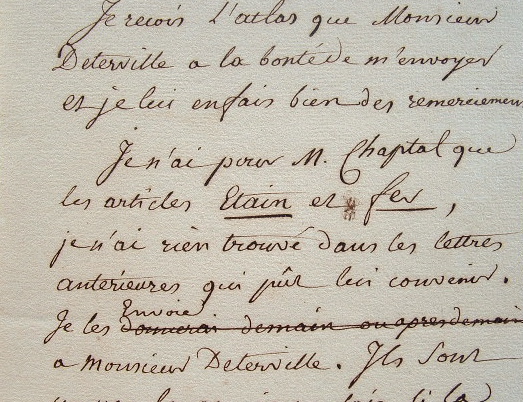 Je reçois L'atlas que Monsieur
Deterville a la bonté de m'envoyer
et je lui en fais bien des remerciemen
Je n'ai pour M. Chaptal que
les articles Etain et fer,
je n'ai rien trouvé dans les lettres
antérieures qui pût lui convenir.
Envoie
Je les donnerai demain ou apresdemain
a Monsieur Deterville. Ils sont